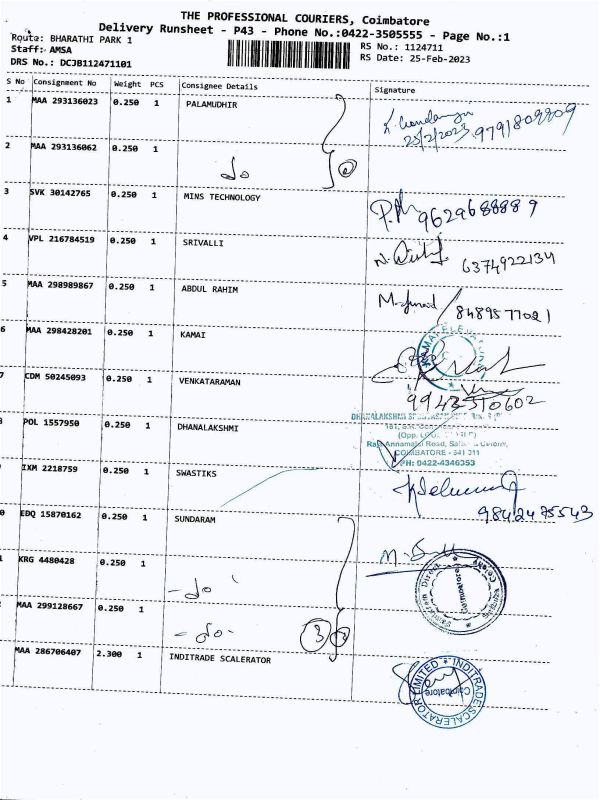 THE PROFESSIONAL COURIERS, Coimbatore
Delivery Runsheet - P43 - Phone No.:0422-3505555 - Page No.:1
Route: BHARATHI PARK 1
Staff: AMSA
DRS No.: DCJB112471101
RS No.: 1124711
RS Date: 25-Feb-2023
S No Consignment No Weight PCS Consignee Details Signature
1 MAA 293136023 0.250 1 PALAMUDHIR
25/2/2023 9791809809
2 MAA 293136062 0.250 1
do 2
3 SVK 30142765 0.250 1 MINS TECHNOLOGY
9629688889
4 VPL 216784519 0.250 1 SRIVALLI
6374922134
5 MAA 298989867 0.250 1 ABDUL RAHIM
8489577021
6 MAA 298428201 0.250 1 KAMAI
7 CDM 50245093 0.250 1 VENKATARAMAN
9943510602
8 POL 1557950 0.250 1 DHANALAKSHMI
DHANALAKSHMI
(Opp.
Annamalai Road, Colony,
COIMBATORE - 641 011
PH: 0422-4346353
IXM 2218759 0.250 1 SWASTIKS
9842475543
0 EDQ 15870162 0.250 1 SUNDARAM
1 KRG 4480428 0.250 1
- do
MAA 299128667 0.250 1
- do - 3
Sundaram Direct
Coimbatore
MAA 286706407 2.300 1 INDITRADE SCALERATOR
INDITRADE SCALERATOR LIMITED
Coimbatore